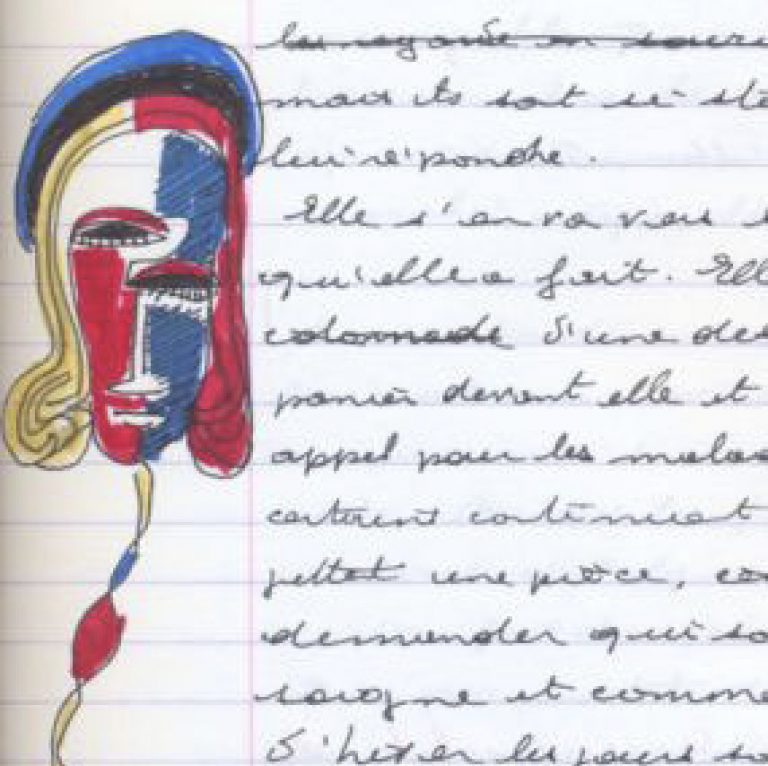 les regarde en souri
mais ils sont si
leur répondre.
Elle s'en va vers
qu'elle a fait. Elle
colonnade d'une des
panier devant elle et
appel pour les malad
certains continuent
jettent une pièce,
demander qui so
soigne et comme
D'hiver les jours so